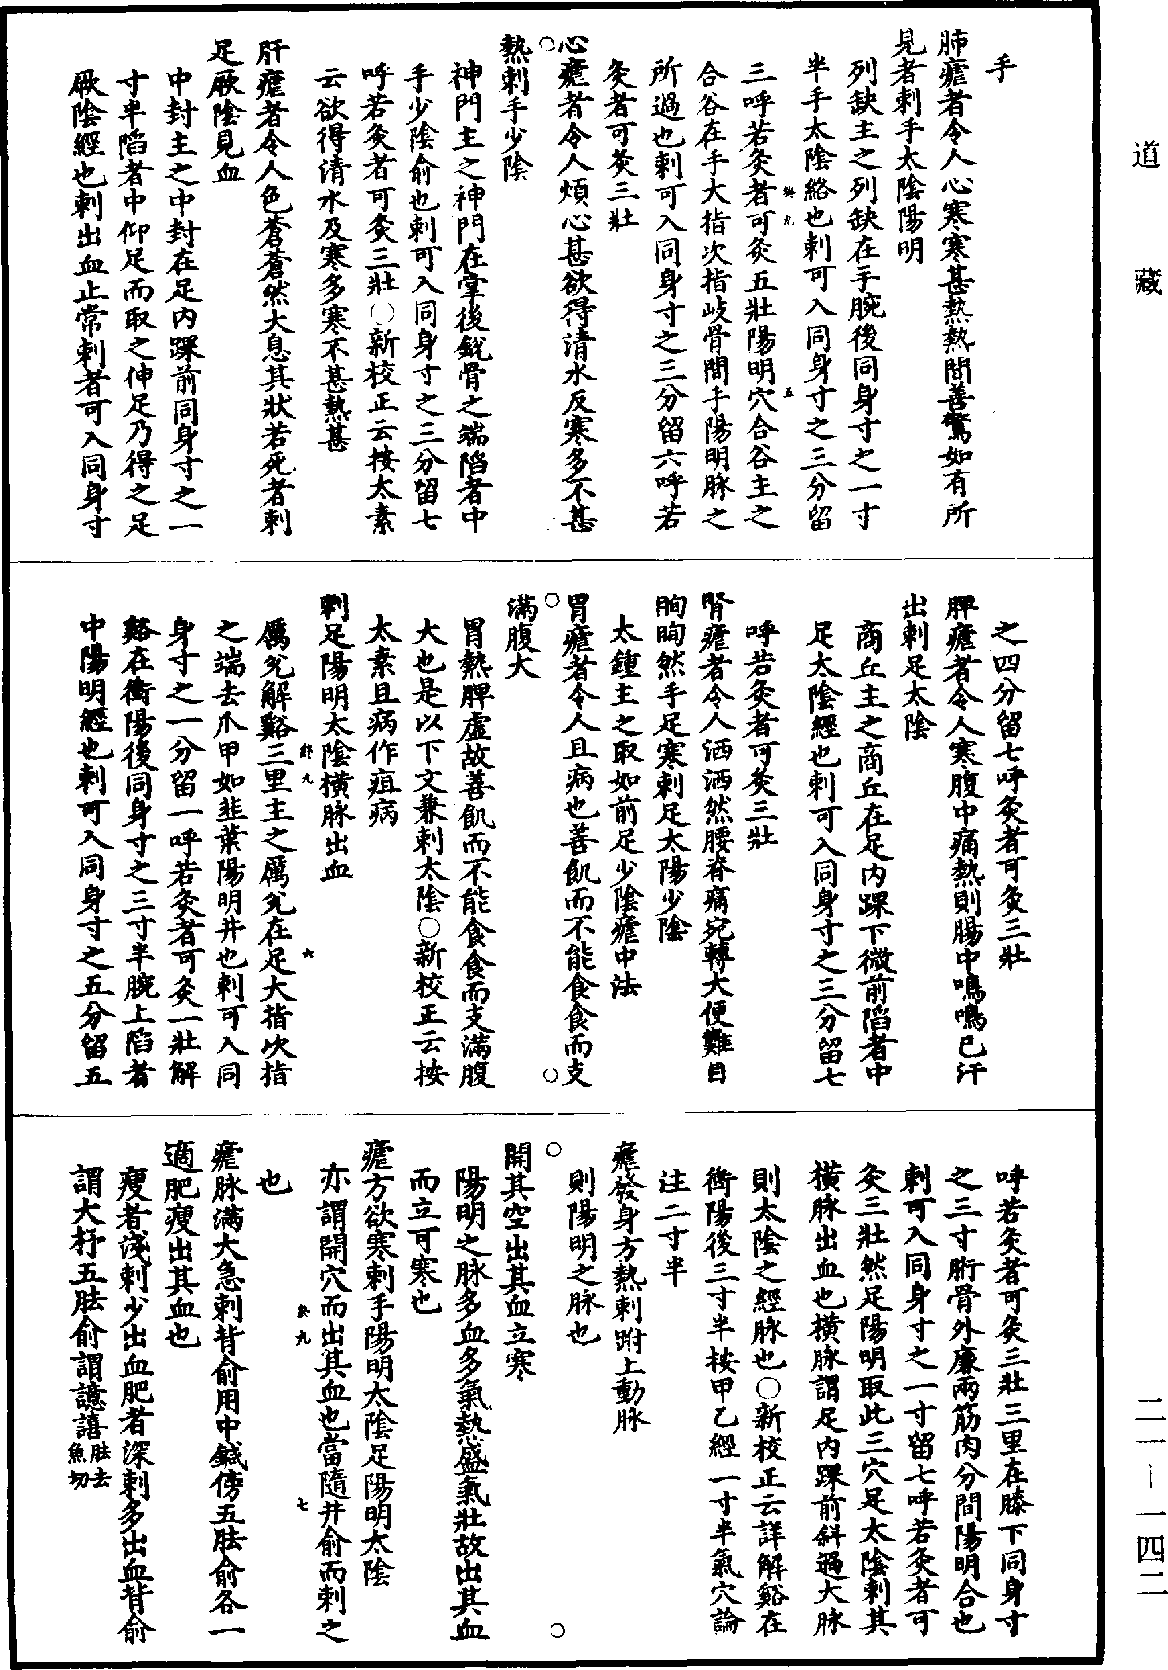 手
肺瘧者令人心寒寒甚熱熱間善驚如有所
見者刺手太陰陽明
列缺主之列缺在手腕後同身寸之一寸
半手太陰絡也刺可入同身寸之三分留
三呼若灸者可灸五壯陽明穴合谷主之
合谷在手大指次指歧骨間手陽明脉之
所過也刺可入同身寸之三分留六呼若
灸者可灸三壯
心瘧者令人煩心甚欲得清水反寒多不甚
熱刺手少陰
神門主之神門在掌後銳骨之端陷者中
手少陰俞也刺可入同身寸之三分留七
呼若灸者可灸三壯○新校正云按太素
云欲得清水及寒多寒不甚熱甚
肝瘧者令人色蒼蒼然大息其狀若死者刺
足厥陰見血
中封主之中封在足内踝前同身寸之一
寸半陷者中仰足而取之伸足乃得之足
厥陰經也刺出血止常刺者可入同身寸
之四分留七呼灸者可灸三壯
脾瘧者令人寒腹中痛熱則腸中鳴鳴已汗
出刺足太陰
商丘主之商丘在足内踝下微前陷者中
足太陰經也刺可入同身寸之三分留七
呼若灸者可灸三壯
腎瘧者令人洒洒然腰脊痛宛轉大便難目
眴眴然手足寒刺足太陽少陰
太鍾主之取如前足少陰瘧中法
胃瘧者令人且病也善飢而不能食食而支
滿腹大
胃熱脾虚故善飢而不能食食而支滿腹
大也是以下文兼刺太陰○新校正云按
太素且病作疽病
刺足陽明太陰橫脉出血
厲兊解谿三里主之厲兊在足大指次指
之端去爪甲如韭葉陽明井也刺可入同
身寸之一分留一呼若灸者可灸一壯解
谿在衝陽後同身寸之三寸半腕上陷者
中陽明經也刺可入同身寸之五分留五
呼若灸者可灸三壯三里在膝下同身寸
之三寸胻骨外廉兩筋肉分間陽明合也
刺可入同身寸之一寸留七呼若灸者可
灸三壯然足陽明取此三穴足太陰刺其
橫脉出血也橫脉謂足内踝前斜過大脉
則太陰之經脉也○新校正云詳解谿在
衝陽後三寸半按甲乙經一寸半氣穴論
注二寸半
瘧發身方熱刺跗上動脉
則陽明之脉也
開其空出其血立寒
陽明之脉多血多氣熱盛氣壯故出其血
而立可寒也
瘧方欲寒刺手陽明太陰足陽明太陰
亦謂開穴而出其血也當隨井俞而刺之
也
瘧脉滿大急刺背俞用中鍼傍五胠俞各一
適肥瘦出其血也
瘦者淺刺少出血肥者深刺多出血背俞
謂大杼五胠俞謂譩譆胠去魚切
道藏
二一－一四二